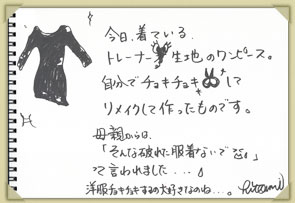 今日、着ている
トレーナー生地のワンピース。
自分でチョキチョキして
リメイクして作ったものです。
母親からは、
「そんな破れた服着ないで」
って言われました・・・。
洋服チョキチョキするの大好きなのね…。
hitomi